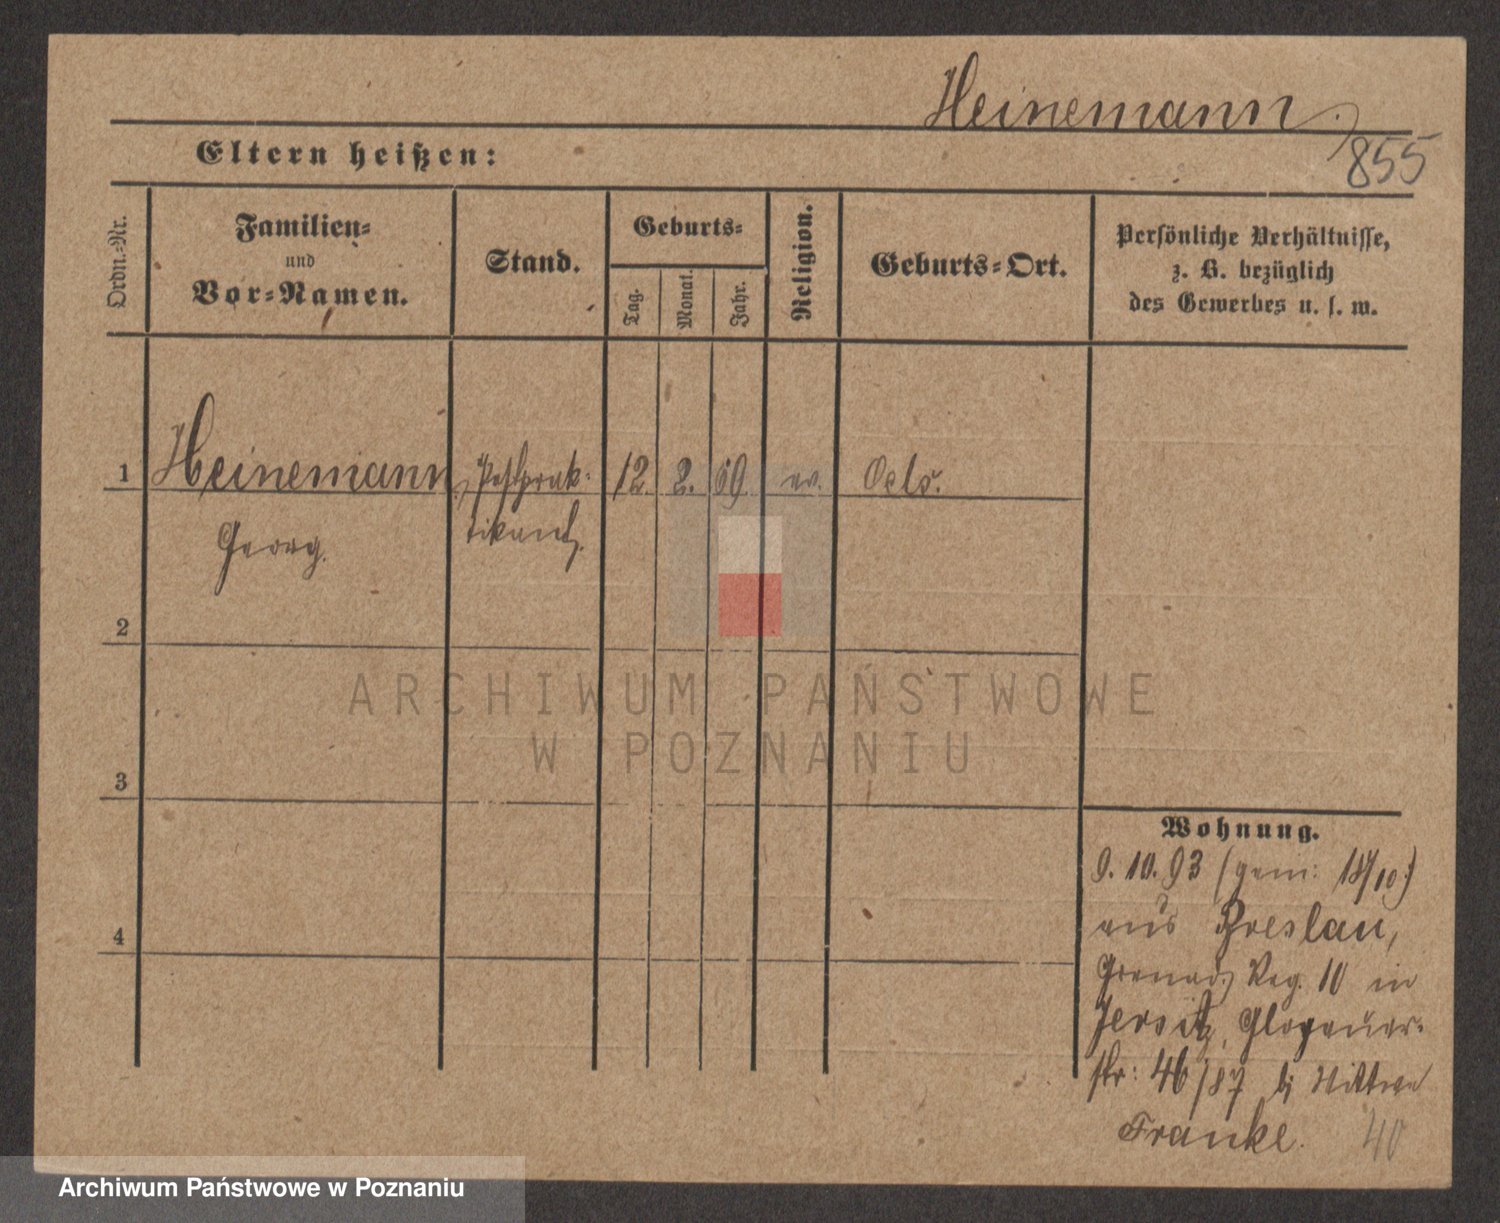 Heinemann.
855
Eltern heißen:
Ordn.=Nr.
Familien=
und
Vor=Namen.
Stand.
Geburts=
Tag.
Monat.
Jahr.
Religion.
Geburts=Ort.
Persönliche Verhältnisse,
z. B. bezüglich
des Gewerbes u. s. w.
1 Heinemann, Postprak- 12. 2. 69. ev. Oels.
Georg. tikant.
2
3
4
Wohnung.
9. 10. 93 (gem: 18/10.)
aus Breslau,
Grenad. Reg. 10 in
Jersitz, Glogauer-
str: 46/87 b/ Wittwe
Franke.
40
ARCHIWUM PAŃSTWOWE
W POZNANIU
Archiwum Państwowe w Poznaniu